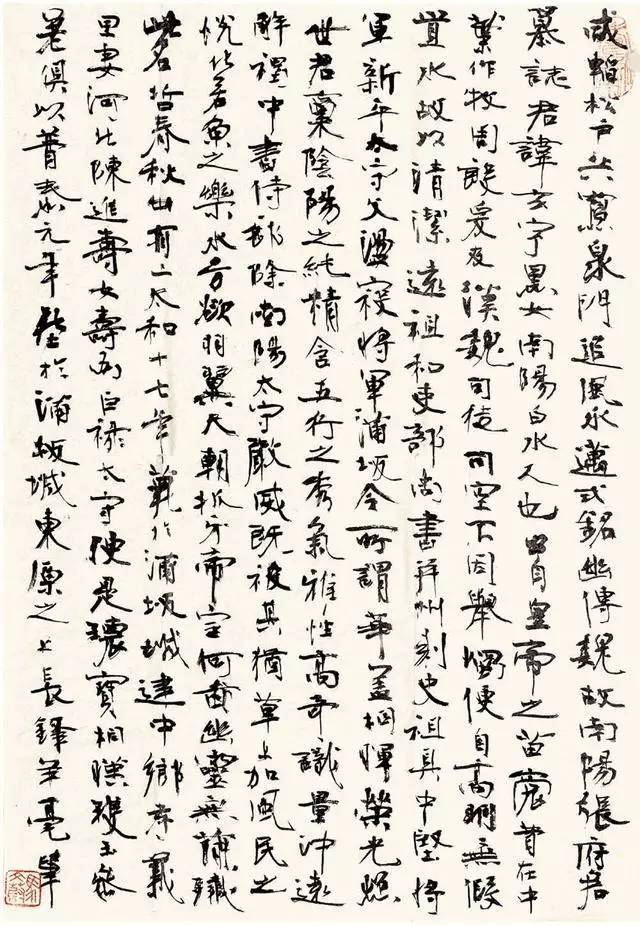 咸韜松户共寢泉門追風永邁式銘幽傳魏故南陽張府君
墓誌君諱玄字黑女南陽白水人也出自皇帝之苗裔昔在中
葉作牧周殷爰及漢魏司徒司空不因舉燭便自高明無假
置水故以清潔遠祖和吏部尚書并州刺史祖具中堅將
軍新平太守父盪寇將軍蒲坂令所謂華蓋相暉榮光照
世君稟陰陽之純精含五行之秀氣雅性高奇識量沖遠
解褐中書侍郎除南陽太守嚴威既被其猶草上加風民之
悅化若魚之樂水方欲羽翼天朝抓牙帝室何圖幽靈無殲
此名哲春秋卅有二太和十七年薨於蒲坂城建中鄉孝義
里妻河北陳進壽女壽為巨祿太守便是瓌寶相暎瓊玉參
差俱以普泰元年葬於蒲坂城東原之上長鋒羊毫筆